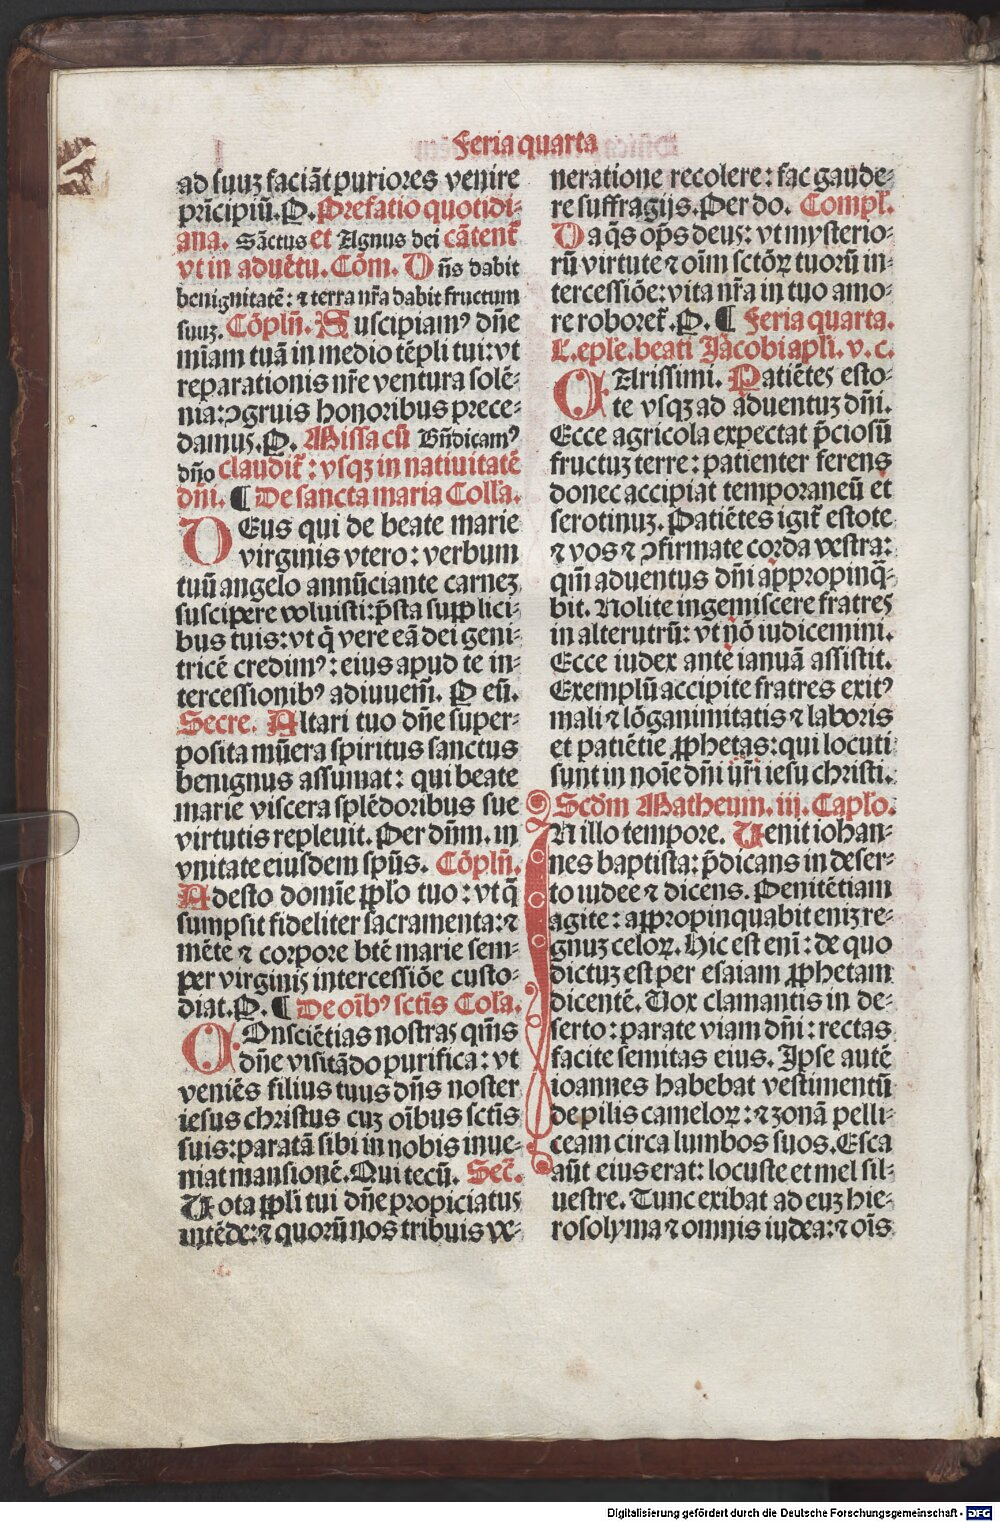 Feria quarta
ad suuʒ faciãt puriores venire
prĩcipiũ.P. Prefatio quotidi⸗
ana. Sãctus et Agnus dei cãtent᷑
vt in aduẽtu. Cõm. Dñs dabit
benignitatẽ: ⁊ terra nr̃a dabit fructum
suuʒ. Cõplñ. Suscipiamꝰ dñe
mĩam tuã in medio tẽpli tui: vt
reparationis nr̃e ventura solẽ⸗
nia: ꝯgruis honoribus prece⸗
damus.P. Missa cũ Bñdicamꝰ
dño claudit᷑: vsqʒ in natiuitatẽ
dñi. ¶ De sancta maria Coll'a.
DEus qui de beate marie
virginis vtero: verbum
tuũ angelo annũciante carneʒ
suscipere voluisti: p̃sta supplici
bus tuis: vt q̃ vere eã dei geni⸗
tricẽ credimꝰ: eius apud te in⸗
tercessionibꝰ adiuuem̃. P eũ.
Secre. Altari tuo dñe super⸗
posita mũera spiritus sanctus
benignus assumat: qui beate
marie viscera splẽdoribus sue
virtutis repleuit. Per dñm. in
vnitate eiusdem spũs. Cõplñ.
Adesto domĩe ꝓplo tuo: vt q̃
sumpsit fideliter sacramenta: ⁊
mẽte ⁊ corpore btẽ marie sem⸗
per virginis intercessiõe custo⸗
diat.P. ¶ De oĩbꝰ sctĩs Col'a.
COnsciẽtias nostras qm̃s
dñe visitãdo purifica: vt
veniẽs filius tuus dñs noster
iesus christus cuʒ oĩbus sctĩs
suis: paratã sibi in nobis inue⸗
niat mansionẽ. Qui tecũ. Secr̃.
Vota ꝓpli tui dñe propiciatus
intẽde: ⁊ quorũ nos tribuis ve⸗
neratione recolere: fac gaude⸗
re suffragijs. Per do. Compl'.
Da q̃s op̃s deus: vt mysterio⸗
rũ virtute ⁊ oĩm sctõꝝ tuorũ in⸗
tercessiõe: vita nr̃a in tuo amo⸗
re roboret᷑.P. ¶ Feria quarta.
L. ep̃le. beati Jacobi apl'i. v. c.
CArissimi. Patiẽtes esto⸗
te vsqʒ ad aduentuʒ dñi.
Ecce agricola expectat p̃ciosũ
fructuʒ terre: patienter ferens
donec accipiat temporaneũ et
serotinuʒ. Patiẽtes igit᷑ estote
⁊ vos ⁊ ꝯfirmate corda vestra:
qm̃ aduentus dñi appropinq̃⸗
bit. Nolite ingemiscere fratres
in alterutrũ: vt nõ iudicemini.
Ecce iudex ante ianuã assistit.
Exemplũ accipite fratres exitꝰ
mali ⁊ lõganimitatis ⁊ laboris
et patiẽtie ꝓphetas: qui locuti
sunt in noĩe dñi nr̃i iesu christi.
Scd̃m Matheum. iij. Capl'o.
IN illo tempore. Venit iohan⸗
nes baptista: p̃dicans in deser⸗
to iudee ⁊ dicens. Penitẽtiam
agite: appropinquabit eniʒ re⸗
gnuʒ celoꝝ. Hic est enĩ: de quo
dictuʒ est per esaiam ꝓphetam
dicentẽ. Vox clamantis in de⸗
serto: parate viam dñi: rectas
facite semitas eius. Ipse autẽ
ioannes habebat vestimentũ
de pilis cameloꝝ: ⁊ zonã pelli⸗
ceam circa lumbos suos. Esca
aũt eius erat: locuste et mel sil⸗
uestre. Tunc exibat ad euʒ hie⸗
rosolyma ⁊ omnis iudea: ⁊ oĩs
Digitalisierung gefördert durch die Deutsche Forschungsgemeinschaft - DFG